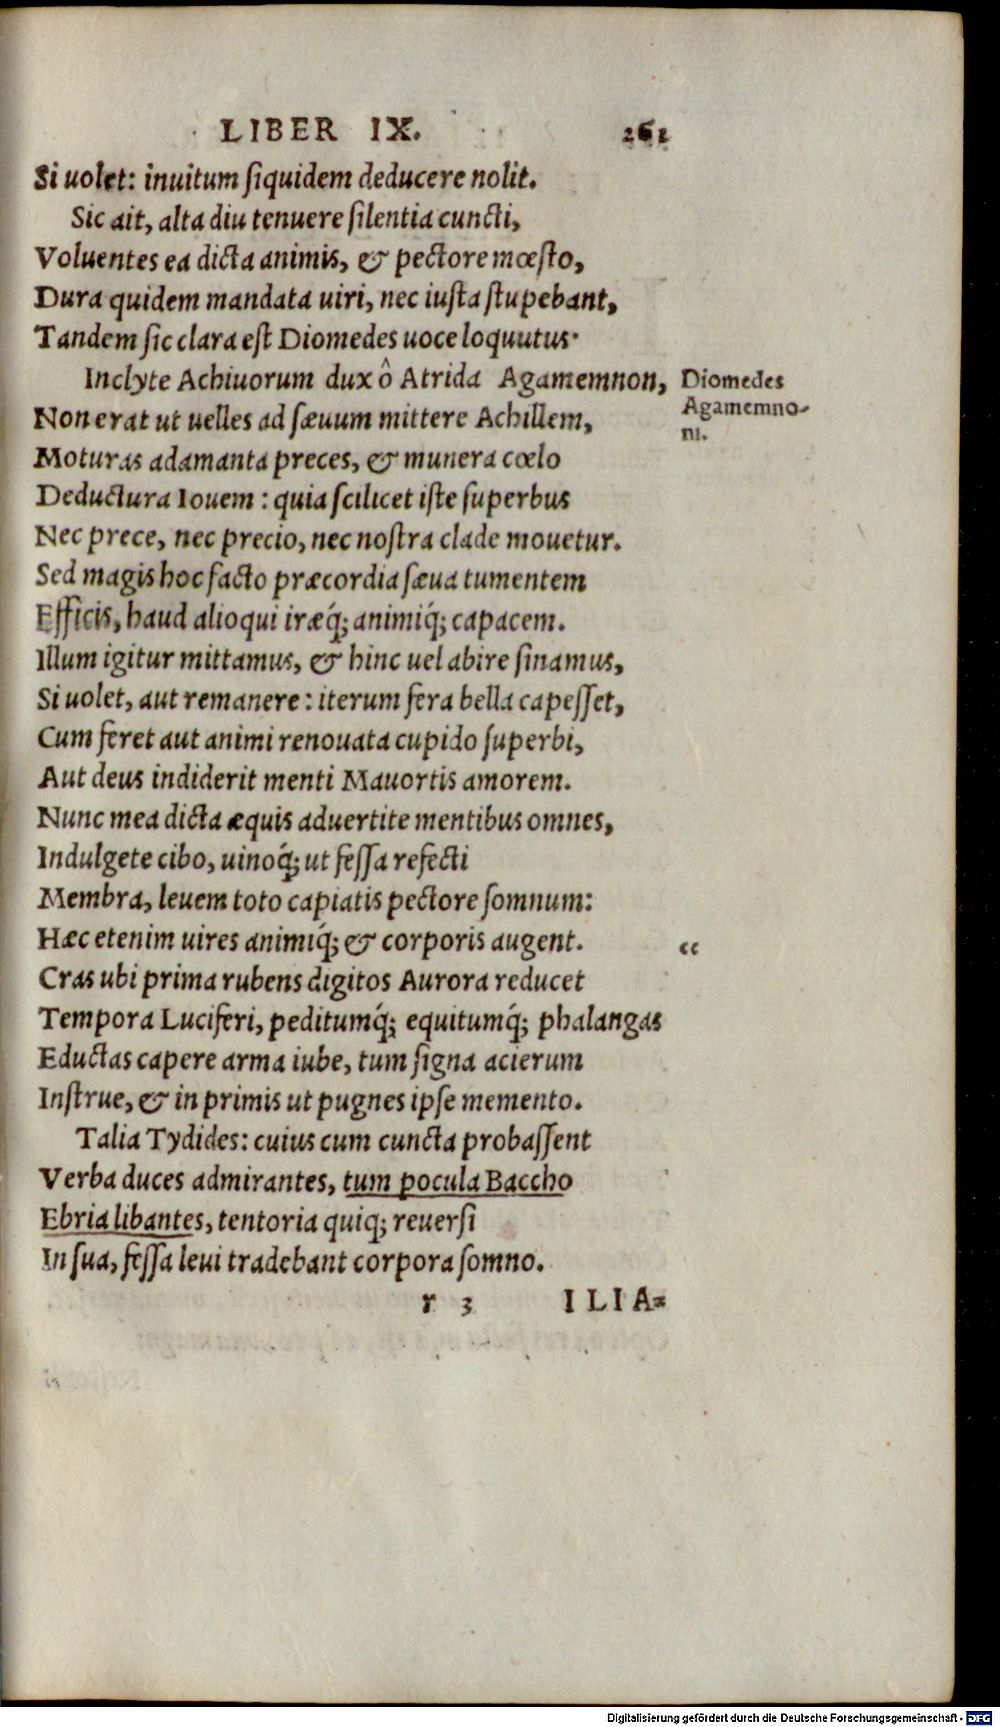 LIBER IX. 261
Si uolet: inuitum ſiquidem deducere nolit.
Sic ait, alta diu tenuere ſilentia cuncti,
Voluentes ea dicta animis, & pectore mœſto,
Dura quidem mandata uiri, nec iuſta ſtupebant,
Tandem ſic clara eſt Diomedes uoce loquutus·
Inclyte Achiuorum dux ô Atrida Agamemnon,
Diomedes
Agamemno-
ni.
Non erat ut uelles ad ſæuum mittere Achillem,
Moturas adamanta preces, & munera cœlo
Deductura Iouem: quia ſcilicet iſte ſuperbus
Nec prece, nec precio, nec noſtra clade mouetur.
Sed magis hoc facto præcordia ſæua tumentem
Efficis, haud alioqui iræq́; animiq́; capacem.
Illum igitur mittamus, & hinc uel abire ſinamus,
Si uolet, aut remanere: iterum fera bella capeſſet,
Cum feret aut animi renouata cupido ſuperbi,
Aut deus indiderit menti Mauortis amorem.
Nunc mea dicta æquis aduertite mentibus omnes,
Indulgete cibo, uinoq́; ut feſſa refecti
Membra, leuem toto capiatis pectore ſomnum:
Hæc etenim uires animiq́; & corporis augent. “
Cras ubi prima rubens digitos Aurora reducet
Tempora Luciferi, peditumq́; equitumq́; phalangas
Eductas capere arma iube, tum ſigna acierum
Inſtrue, & in primis ut pugnes ipſe memento.
Talia Tydides: cuius cum cuncta probaſſent
Verba duces admirantes, tum pocula Baccho
Ebria libantes, tentoria quiq; reuerſi
In ſua, feſſa leui tradebant corpora ſomno.
r 3 ILIA-
Digitalisierung gefördert durch die Deutsche Forschungsgemeinschaft - DFG